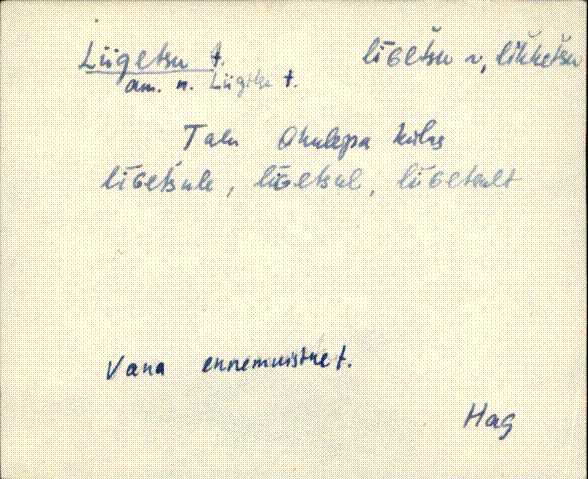 Lügetsu t. līGetšu ~, likketšu
am. n. Lügitsu t.
Talu Ohulepa külas
līGetšule, līGetsul, līGetsult
Vana ennemuistne t.
Hag